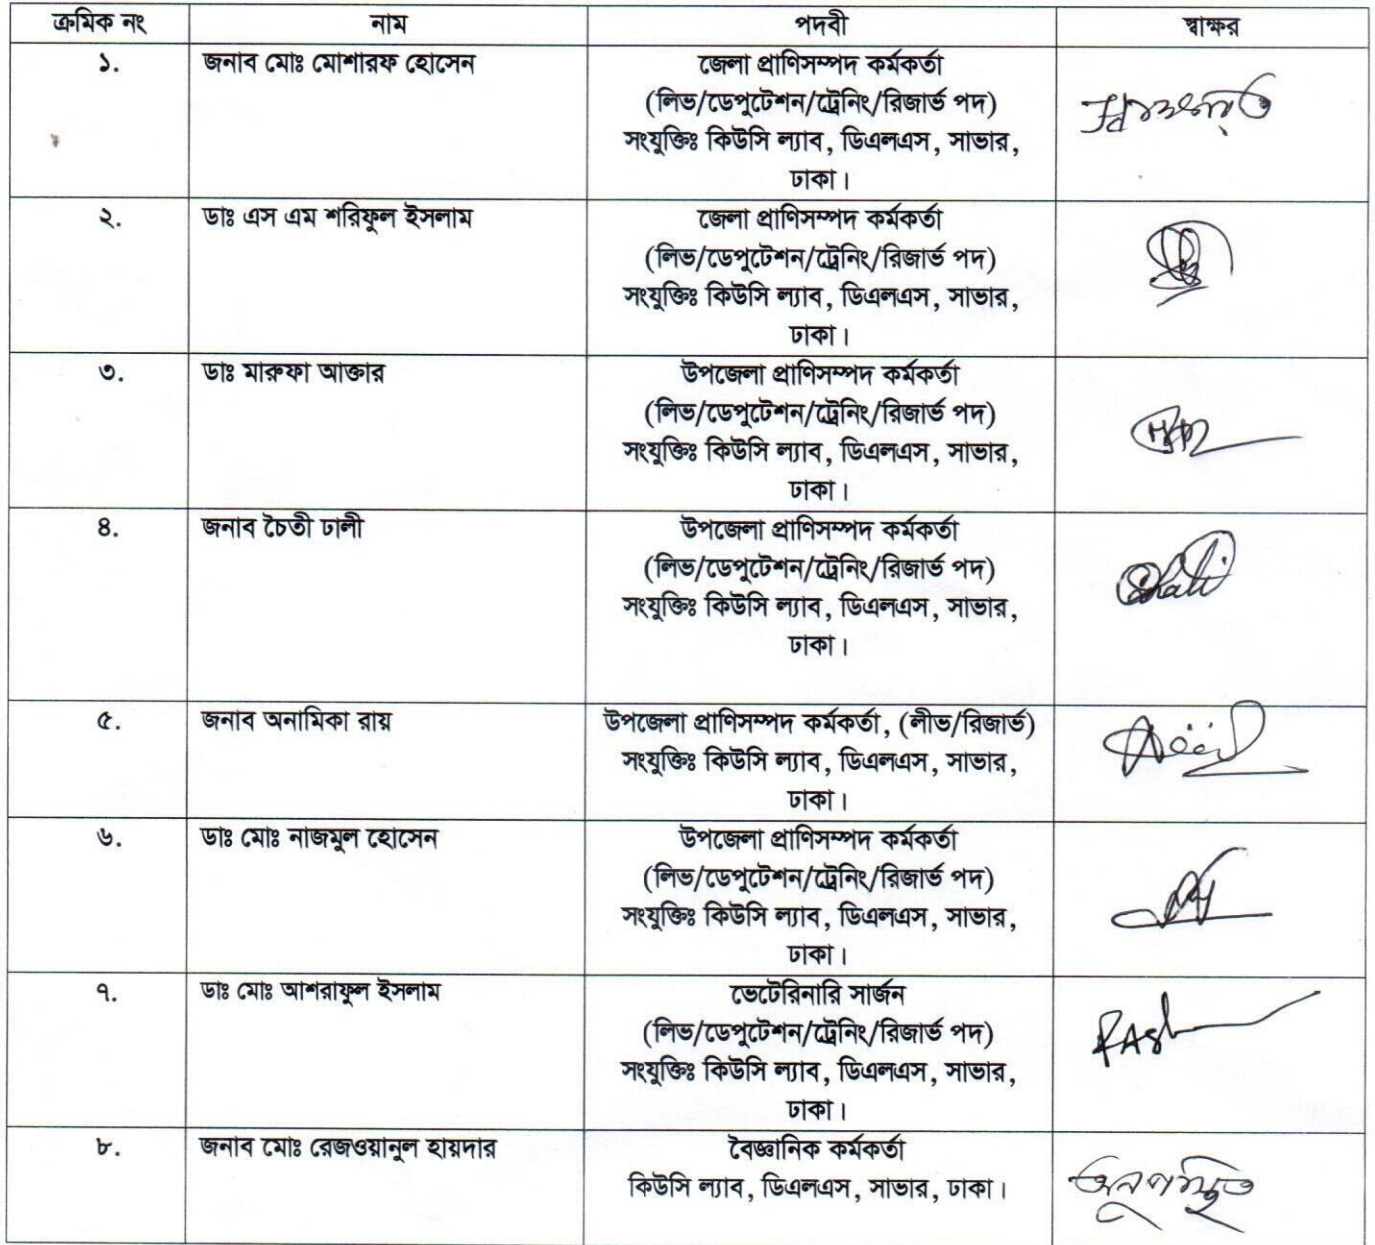 ক্রমিক নং নাম পদবী স্বাক্ষর
১. জনাব মোঃ মোশারফ হোসেন জেলা প্রাণিসম্পদ কর্মকর্তা
(লিভ/ডেপুটেশন/ট্রেনিং/রিজার্ভ পদ)
সংযুক্তিঃ কিউসি ল্যাব, ডিএলএস, সাভার,
ঢাকা।
২. ডাঃ এস এম শরিফুল ইসলাম জেলা প্রাণিসম্পদ কর্মকর্তা
(লিভ/ডেপুটেশন/ট্রেনিং/রিজার্ভ পদ)
সংযুক্তিঃ কিউসি ল্যাব, ডিএলএস, সাভার,
ঢাকা।
৩. ডাঃ মারুফা আক্তার উপজেলা প্রাণিসম্পদ কর্মকর্তা
(লিভ/ডেপুটেশন/ট্রেনিং/রিজার্ভ পদ)
সংযুক্তিঃ কিউসি ল্যাব, ডিএলএস, সাভার,
ঢাকা।
৪. জনাব চৈতী ঢালী উপজেলা প্রাণিসম্পদ কর্মকর্তা
(লিভ/ডেপুটেশন/ট্রেনিং/রিজার্ভ পদ)
সংযুক্তিঃ কিউসি ল্যাব, ডিএলএস, সাভার,
ঢাকা।
৫. জনাব অনামিকা রায় উপজেলা প্রাণিসম্পদ কর্মকর্তা, (লীভ/রিজার্ভ)
সংযুক্তিঃ কিউসি ল্যাব, ডিএলএস, সাভার,
ঢাকা।
৬. ডাঃ মোঃ নাজমুল হোসেন উপজেলা প্রাণিসম্পদ কর্মকর্তা
(লিভ/ডেপুটেশন/ট্রেনিং/রিজার্ভ পদ)
সংযুক্তিঃ কিউসি ল্যাব, ডিএলএস, সাভার,
ঢাকা।
৭. ডাঃ মোঃ আশরাফুল ইসলাম ভেটেরিনারি সার্জন
(লিভ/ডেপুটেশন/ট্রেনিং/রিজার্ভ পদ)
সংযুক্তিঃ কিউসি ল্যাব, ডিএলএস, সাভার,
ঢাকা।
৮. জনাব মোঃ রেজওয়ানুল হায়দার বৈজ্ঞানিক কর্মকর্তা
কিউসি ল্যাব, ডিএলএস, সাভার, ঢাকা। অনুপস্থিত